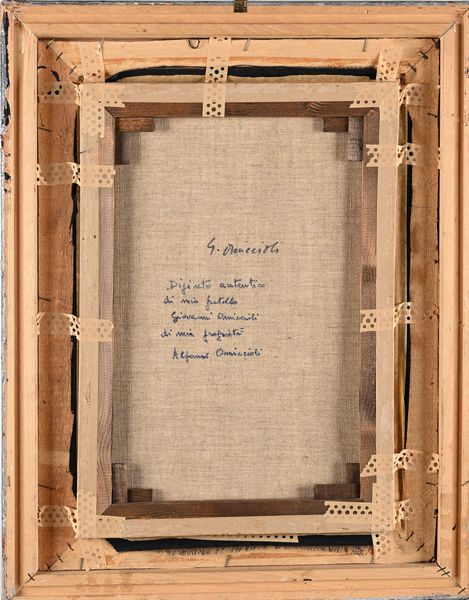 G. Omiccioli
Dipinto autentico
di mio fratello
Giovanni Omiccioli
di mia proprietà
Alfonso Omiccioli